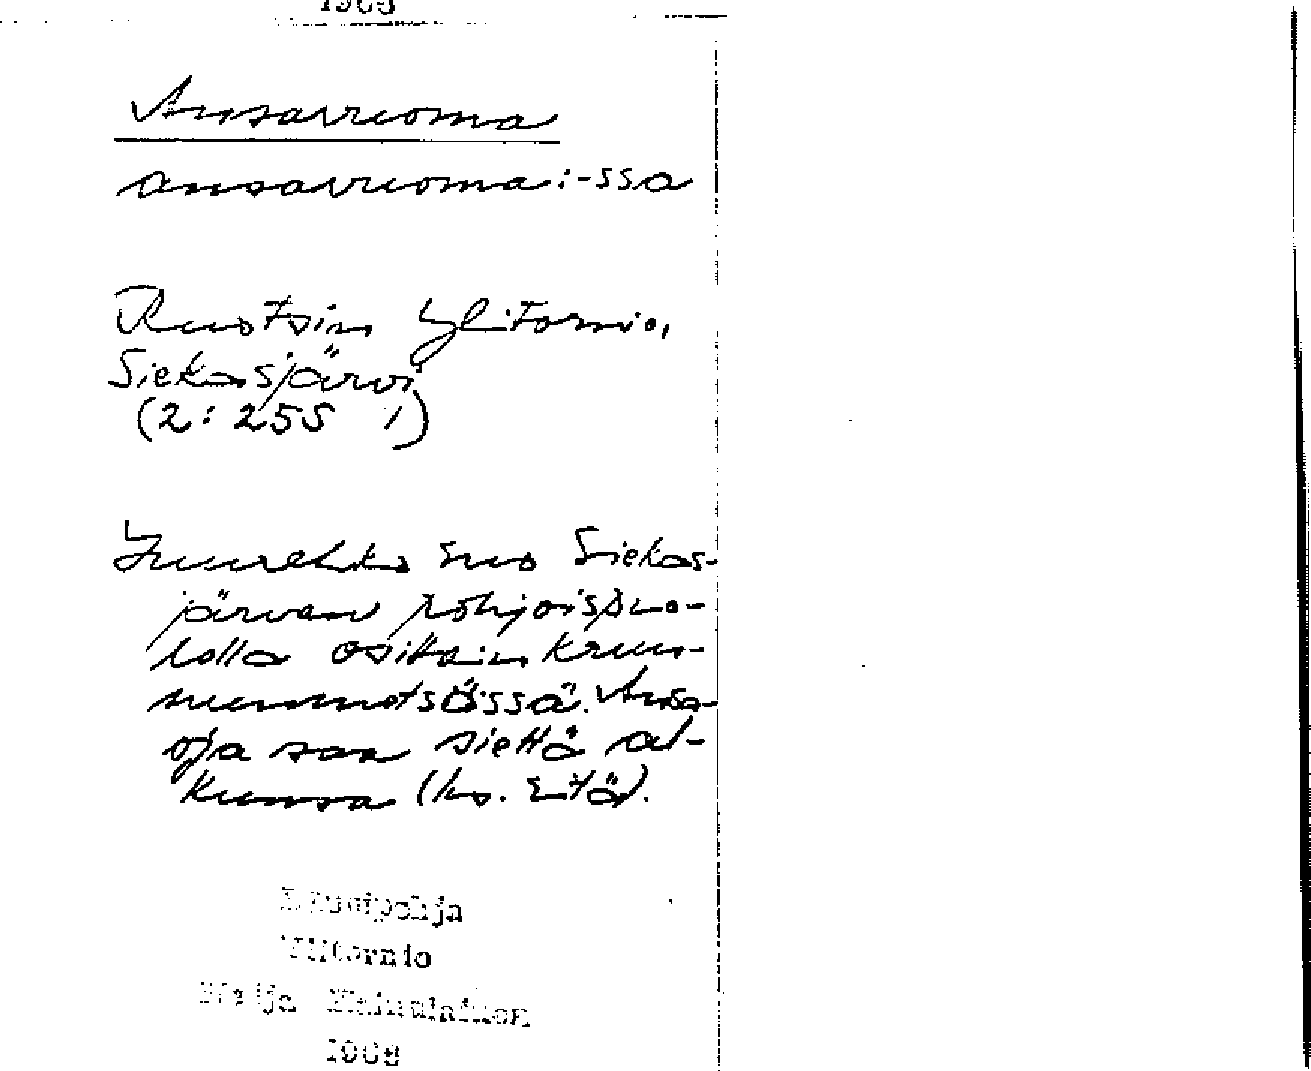 1968
Ansavuoma
ansavuoma: -ssa
Ruotsin Ylitornio,
Siekasjärvi
(2: 255 1)
Suurehko suo Siekas-
järven pohjoispuo-
lella osittain kruu-
nunmetsässä. Ansa-
oja saa sieltä al-
kunsa (ks. sitä).
Länsipohja
Ylitornio
1968